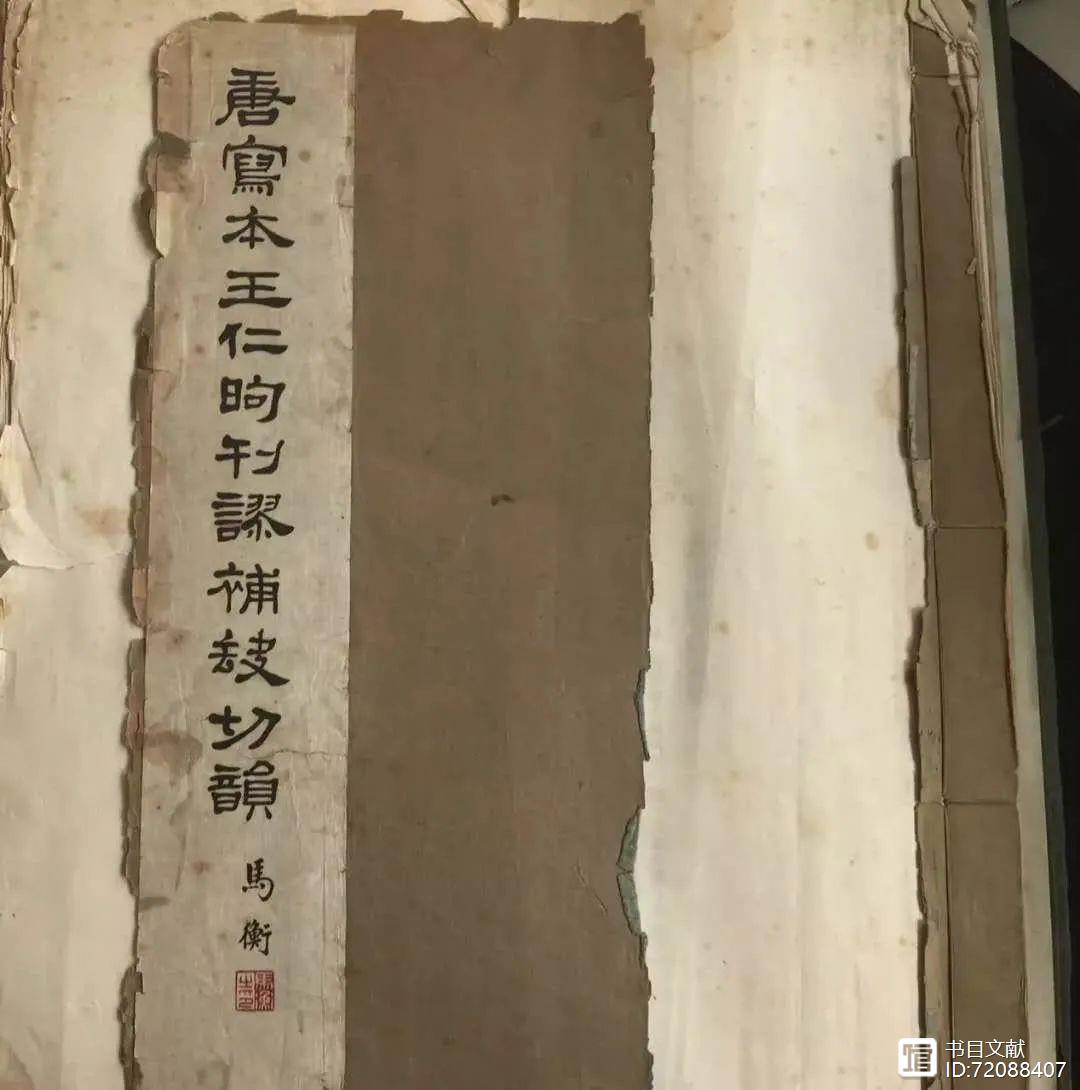 唐寫本王仁昫刊謬補缺切韻
馬衡
书目文献
ID:72088407